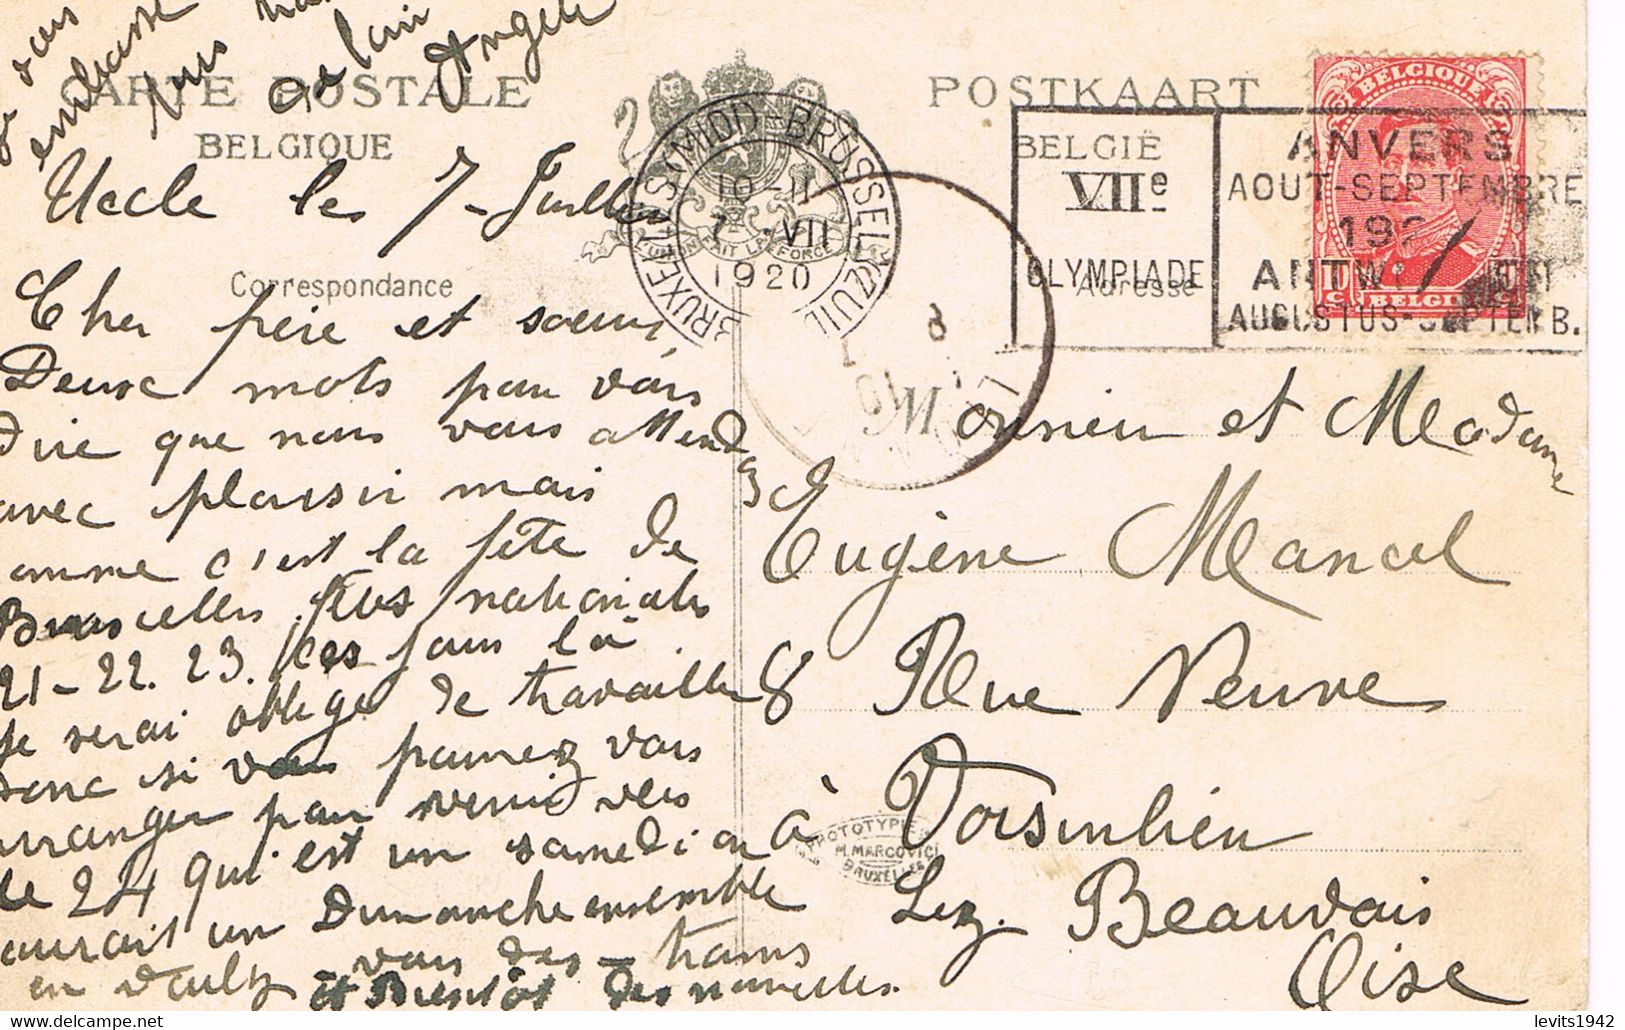 CARTE POSTALE
BELGIQUE
POSTKAART
BELGIË
Correspondance
Adresse
L'UNION FAIT LA FORCE
BRUXELLES (MIDI) - BRUSSEL (ZUID)
10-11
7 VII
1920
VIIe
OLYMPIADE
ANVERS
AOUT-SEPTEMBRE
192
ANTW
AUGUSTUS-SEPTEMB.
BELGIQUE
BELGIE
8
embrasse
Angele
Uccle le 7 - Juillet
Cher frère et soeur
Deux mots pour vous
dire que nous vous attendons
avec plaisir mais
comme c'est la fête de
Bruxelles nationales
21-22. 23. ces jours là
je serai obligé de travailler
donc si vous pourrez vous
arranger pour venir vers
le 24 qui est un samedi on
aurait un Dimanche ensemble
en vous des trams
et Bientôt des nouvelles.
Monsieur et Madame
Eugène Mancel
8 Rue Neuve
à Voisinlieu
Lez. Beauvais
Oise
PHOTOTYPIE
M. MARCOVICI
BRUXELLES
levits1942